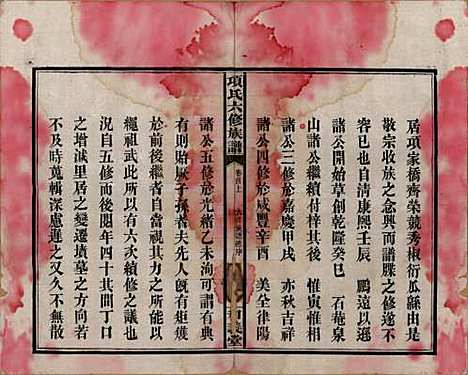 居項家橋齊榮競秀椒衍瓜緜由是
敬宗收族之念興而譜牒之修遂不
容已也自清康熙壬辰　鵬遠以遜
諸公開始草創乾隆癸巳　石菴泉
山諸公繼續付梓其後　惟寅惟相
諸公三修於嘉慶甲戌　亦秋吉祥
諸公四修於咸豐辛酉　美全律陽
項氏六修族譜
卷首上
諸公五修於光緒乙未洵可謂有典
有則貽厥子孫者夫先人既有矩矱
於前後繼者自上
繩祖武此所以有六修之議也
自五修而後閱年四十其間丁口
之增減里居之變遷墳墓之方向若
不及時蒐輯深慮遲之又久不無散